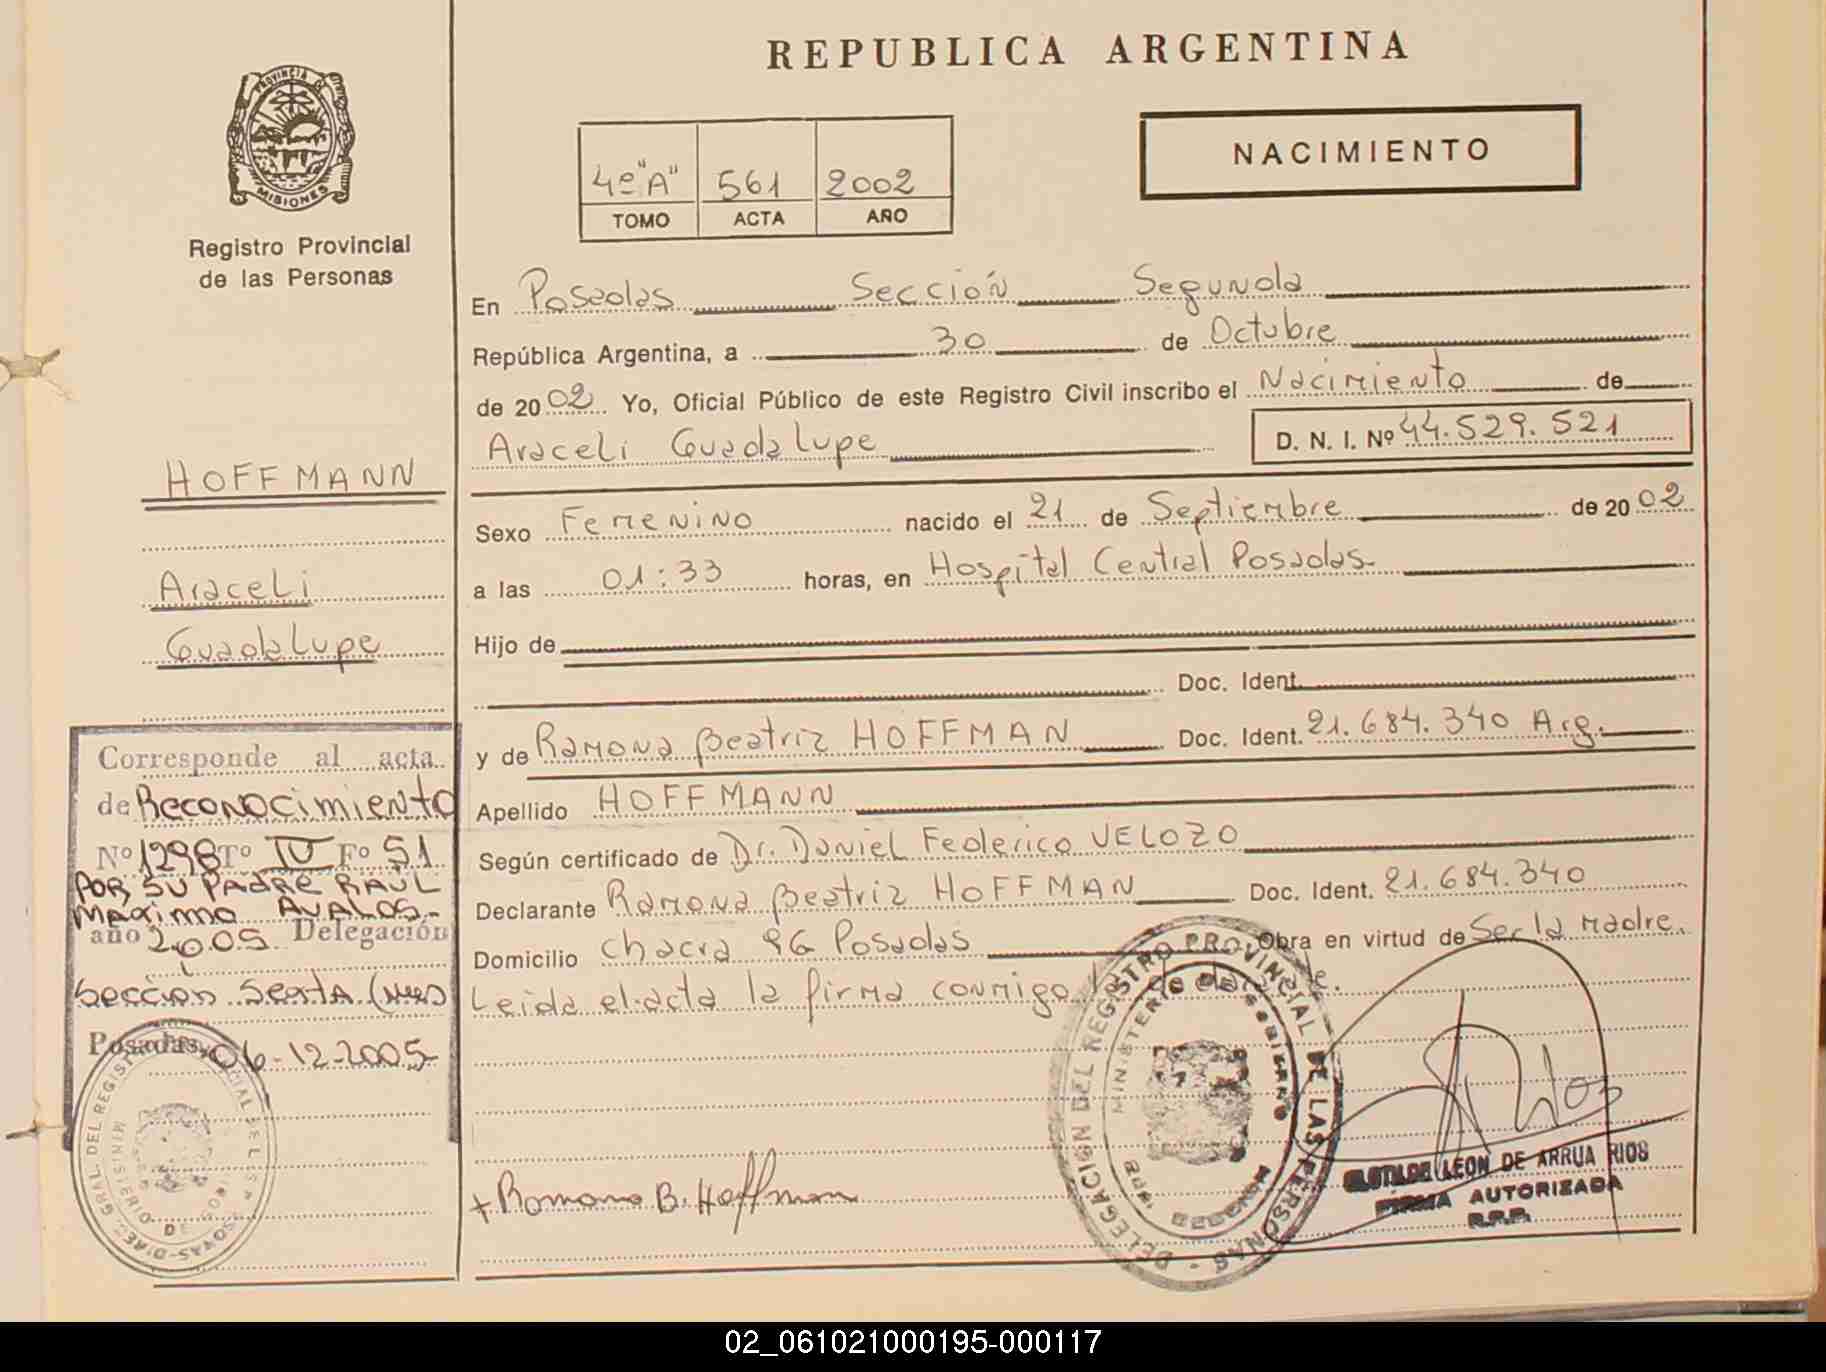 REPUBLICA ARGENTINA
PROVINCIA DE
MISIONES
Registro Provincial
de las Personas
4º "A" 561 2002
TOMO ACTA AÑO
NACIMIENTO
En Posadas Sección Segunda
República Argentina, a 30 de Octubre
de 2002 Yo, Oficial Público de este Registro Civil inscribo el Nacimiento de
Araceli Guadalupe D. N. I. Nº 44.529.521
Sexo Femenino nacido el 21 de Septiembre de 2002
a las 01:33 horas, en Hospital Central Posadas
Hijo de
Doc. Ident.
y de Ramona Beatriz HOFFMAN Doc. Ident. 21.684.340 Arg.
Apellido HOFFMANN
Según certificado de Dr. Daniel Federico VELOZO
Declarante Ramona Beatriz HOFFMAN Doc. Ident. 21.684.340
Domicilio Chacra 96 Posadas Obra en virtud de Ser la Madre.
Leida el acta la firma conmigo la declarante.
+ Ramona B. Hoffman
DELEGACION DEL REGISTRO PROVINCIAL DE LAS PERSONAS
MINISTERIO DE GOBIERNO
LEON DE ARRUA RIOS
FIRMA AUTORIZADA
R.P.P.
HOFFMANN
Araceli
Guadalupe
Corresponde al acta
de Reconocimiento
Nº 1298 Tº IV Fº 51
POR SU PADRE RAUL
Maximo AVALOS-
año 2.005 Delegación
Sección Sexta
Posadas, 06-12-2005-
02_061021000195-000117